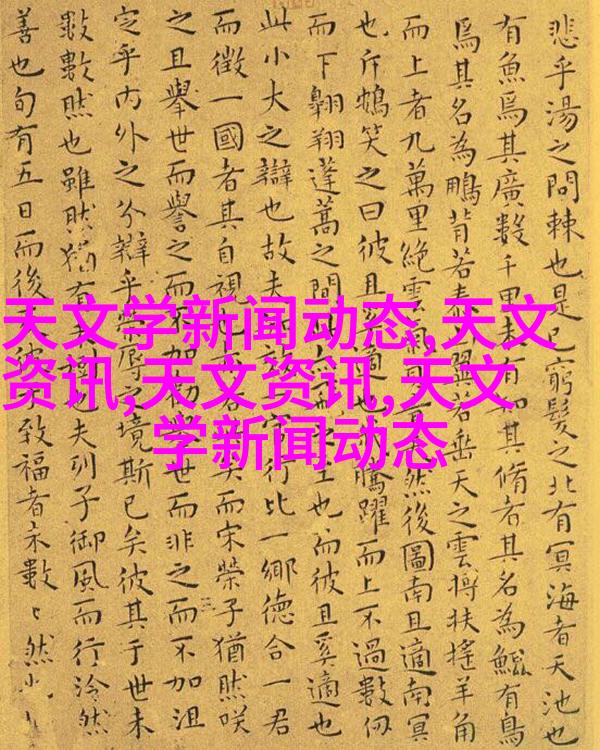 悲乎湯之問棘也是已窮髮之北有冥海者天池也
有魚焉其廣數千里未有知其脩者其名為鯤有鳥
焉其名為鵬背若泰山翼若垂天之雲摶扶搖羊角
而上者九萬里絕雲氣天然後圖南且適南冥
也斥鴳笑之曰彼且奚適也我騰躍而上不過數仞
而下翱翔蓬蒿之間此亦之至也而彼且奚適也
此小大之辯也故夫效一官行比一鄉德合一君
而徵一國者其自視也亦若矣而宋榮子猶然咲
之且舉世而譽之而不加勸舉世而非之而不加沮
定乎內外之分辯乎榮辱之境斯已矣彼其于世未
數數然也雖然猶有未樹也夫列子御風而行泠然
善也旬有五日而後反彼于致福者未數〻然
天文学新闻动态,天文
资讯,天文资讯,天文
学新闻动态